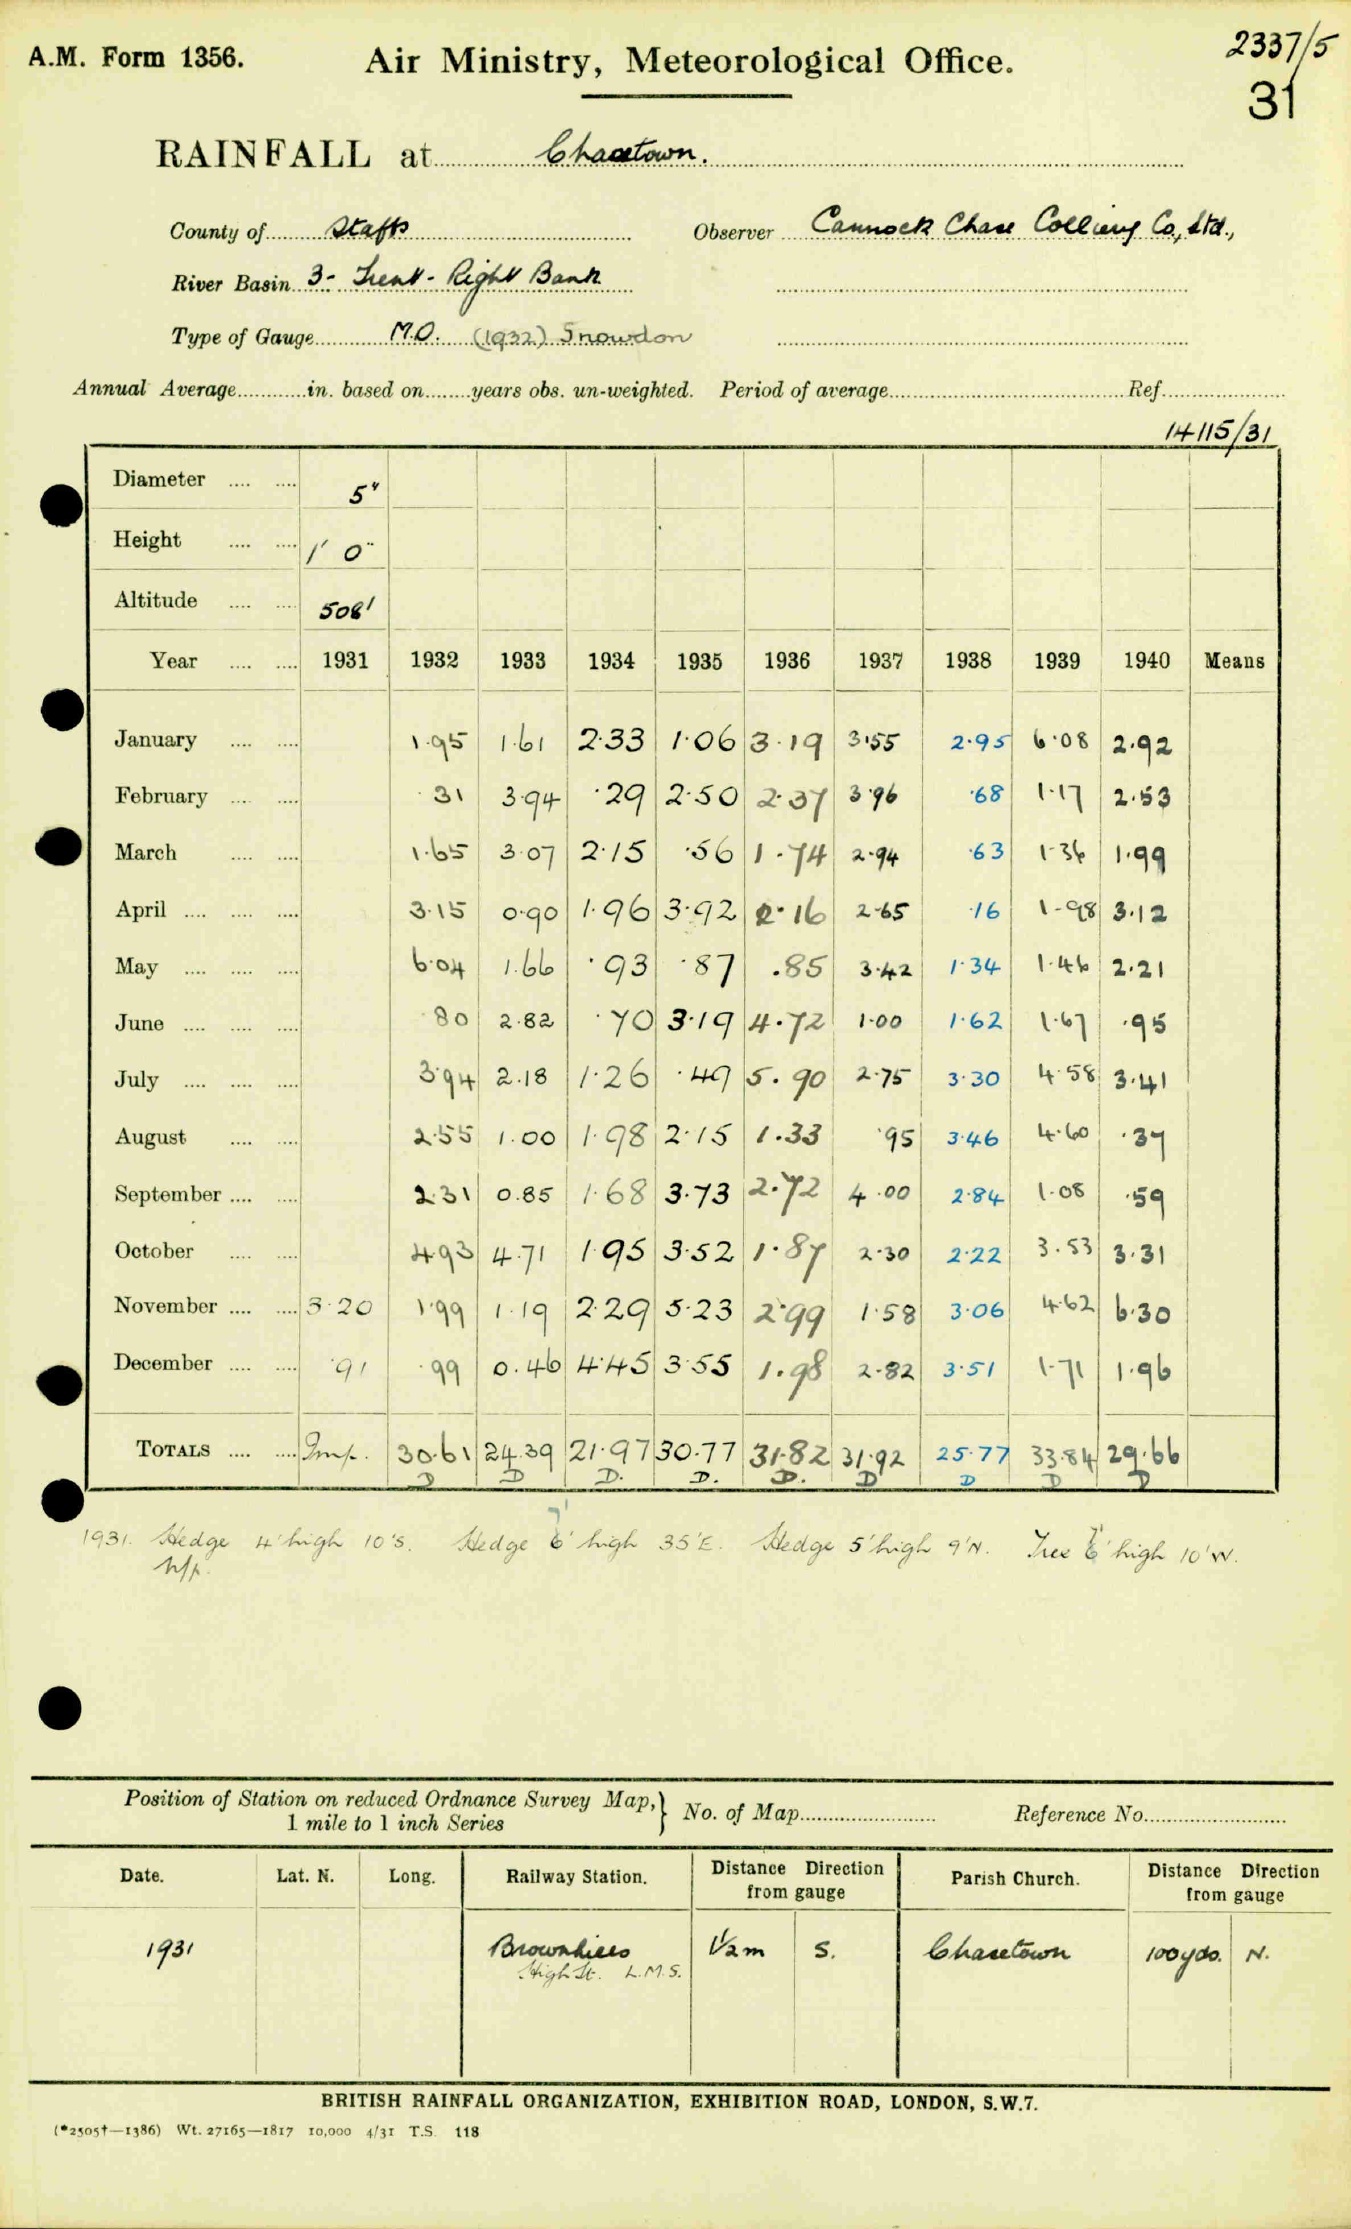 A.M. Form 1356.
Air Ministry, Meteorological Office.
2337/5
31
RAINFALL at Chasetown.
County of Staffs
Observer Cannock Chase Colliery Co., Ltd.,
River Basin 3- Trent - Right Bank
Type of Gauge M.O. (1932) Snowdon
Annual Average in. based on years obs. un-weighted. Period of average Ref.
14115/31
Diameter 5"
Height 1' 0"
Altitude 508'
Year 1931 1932 1933 1934 1935 1936 1937 1938 1939 1940 Means
January 1.95 1.61 2.33 1.06 3.19 3.55 2.95 6.08 2.92
February .31 3.94 .29 2.50 2.37 3.96 .68 1.17 2.53
March 1.65 3.07 2.15 .56 1.74 2.94 .63 1.36 1.99
April 3.15 0.90 1.96 3.92 2.16 2.65 .16 1.98 3.12
May 6.04 1.66 .93 .87 .85 3.42 1.34 1.46 2.21
June .80 2.82 .70 3.19 4.72 1.00 1.62 1.67 .95
July 3.94 2.18 1.26 .49 5.90 2.75 3.30 4.58 3.41
August 2.55 1.00 1.98 2.15 1.33 .95 3.46 4.60 .37
September 2.31 0.85 1.68 3.73 2.72 4.00 2.84 1.08 .59
October 4.93 4.71 1.95 3.52 1.87 2.30 2.22 3.53 3.31
November 3.20 1.99 1.19 2.29 5.23 2.99 1.58 3.06 4.62 6.30
December .91 .99 0.46 4.45 3.55 1.98 2.82 3.51 1.71 1.96
TOTALS Imp. 30.61 24.39 21.97 30.77 31.82 31.92 25.77 33.84 29.66
D D D. D. D. D D D D
1931. Hedge 4' high 10'S. Hedge 6' 7' high 35'E. Hedge 5' high 9'N. Tree 6' 7' high 10'W.
Position of Station on reduced Ordnance Survey Map, 1 mile to 1 inch Series
No. of Map
Reference No.
Date. Lat. N. Long. Railway Station. Distance Direction from gauge Parish Church. Distance Direction from gauge
1931 Brownhills 1½m S. Chasetown 100yds. N.
High St. L.M.S.
BRITISH RAINFALL ORGANIZATION, EXHIBITION ROAD, LONDON, S.W.7.
(*2505†—1386) Wt. 27165—1817 10,000 4/31 T.S. 118